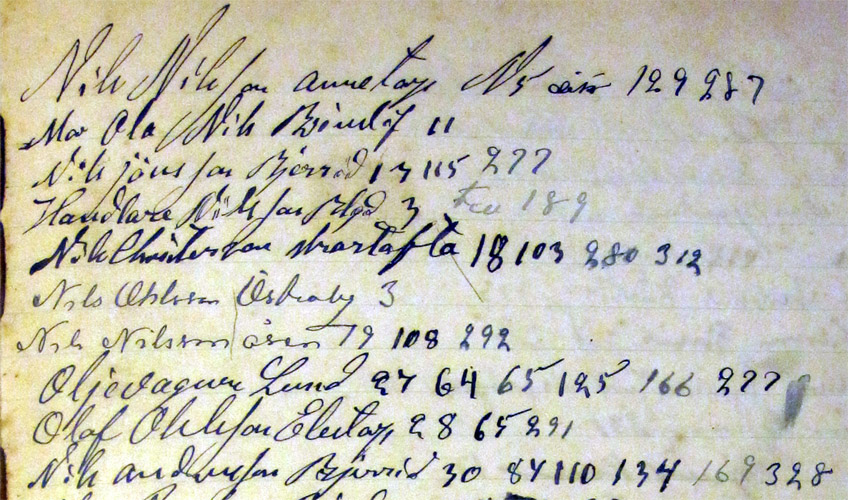 Nils Nilsson annetorp N 5 129 287
Mor Ola Nils 11
Nils jönsson Bjerröd 17 115 277
Handlare Nilsson 3 189
Nils Christersson 18 103 280 312
Nils Ohlsson Östraby 3
Nils Nilsson åsen 19 108 292
Oljevagnen Lund 27 64 65 125 166 277
Olof Ohlsson Elestorp 28 65 291
Nils andersson Bjerröd 30 84 110 134 169 328